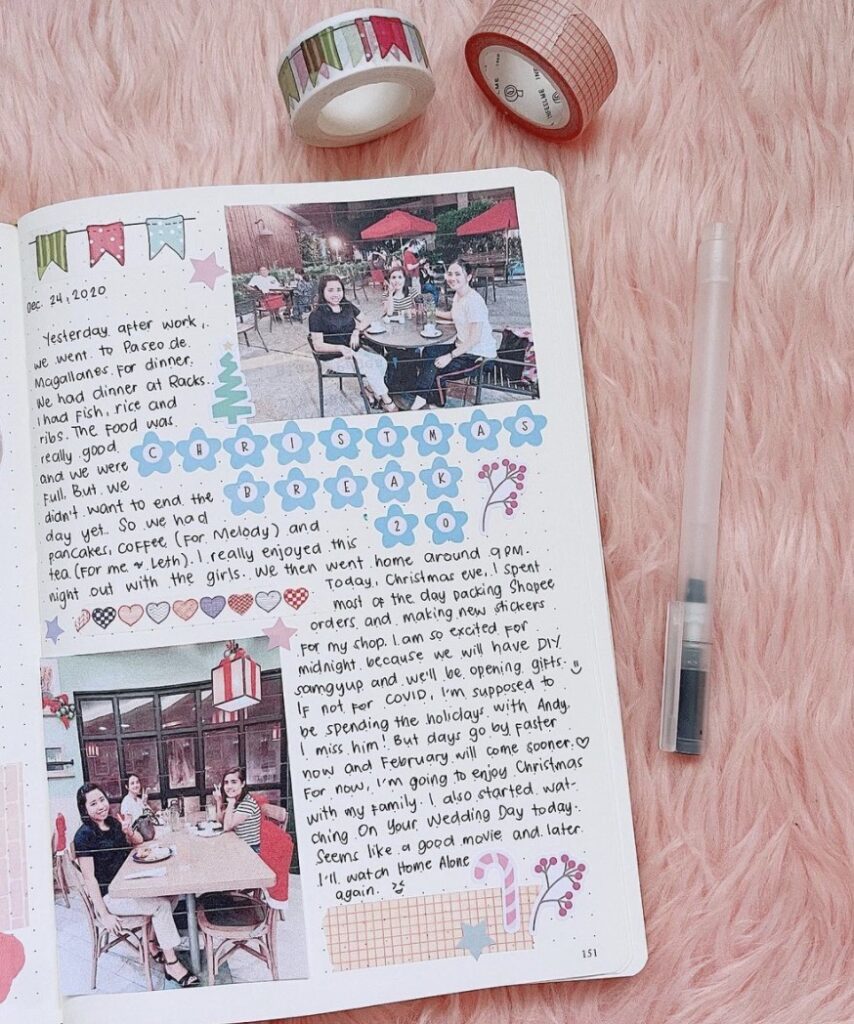 Dec. 24, 2020
Yesterday after work,
we went to Paseo de
Magallanes for dinner.
We had dinner at Racks.
I had fish, rice and
ribs. The food was
really good
and we were
full. But we
didn't want to end the
day yet. So we had
pancakes, coffee (for Melody) and
tea (for me & Leth). I really enjoyed this
night out with the girls. We then went home around 9PM.
CHRISTMAS
BREAK
20
Today, Christmas eve, I spent
most of the day packing Shopee
orders and making new stickers
for my shop. I am so excited for
midnight because we will have DIY
samgyup and we'll be opening gifts.
If not for COVID, I'm supposed to
be spending the holidays with Andy.
I miss him! But days go by faster
now and February will come sooner.
For now, I'm going to enjoy Christmas
with my family. I also started wat-
ching On Your Wedding Day today.
Seems like a good movie and later
I'll watch Home Alone
again.
151